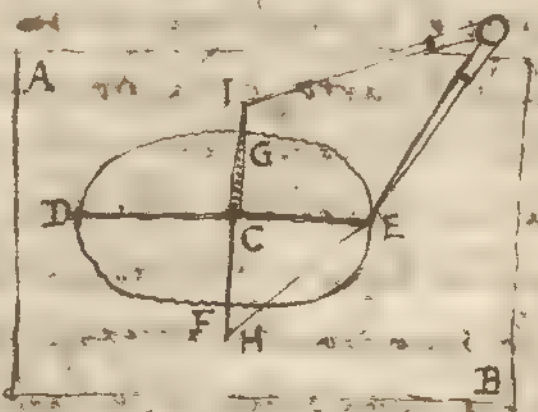 A
I
G
D
C
E
F
H
B